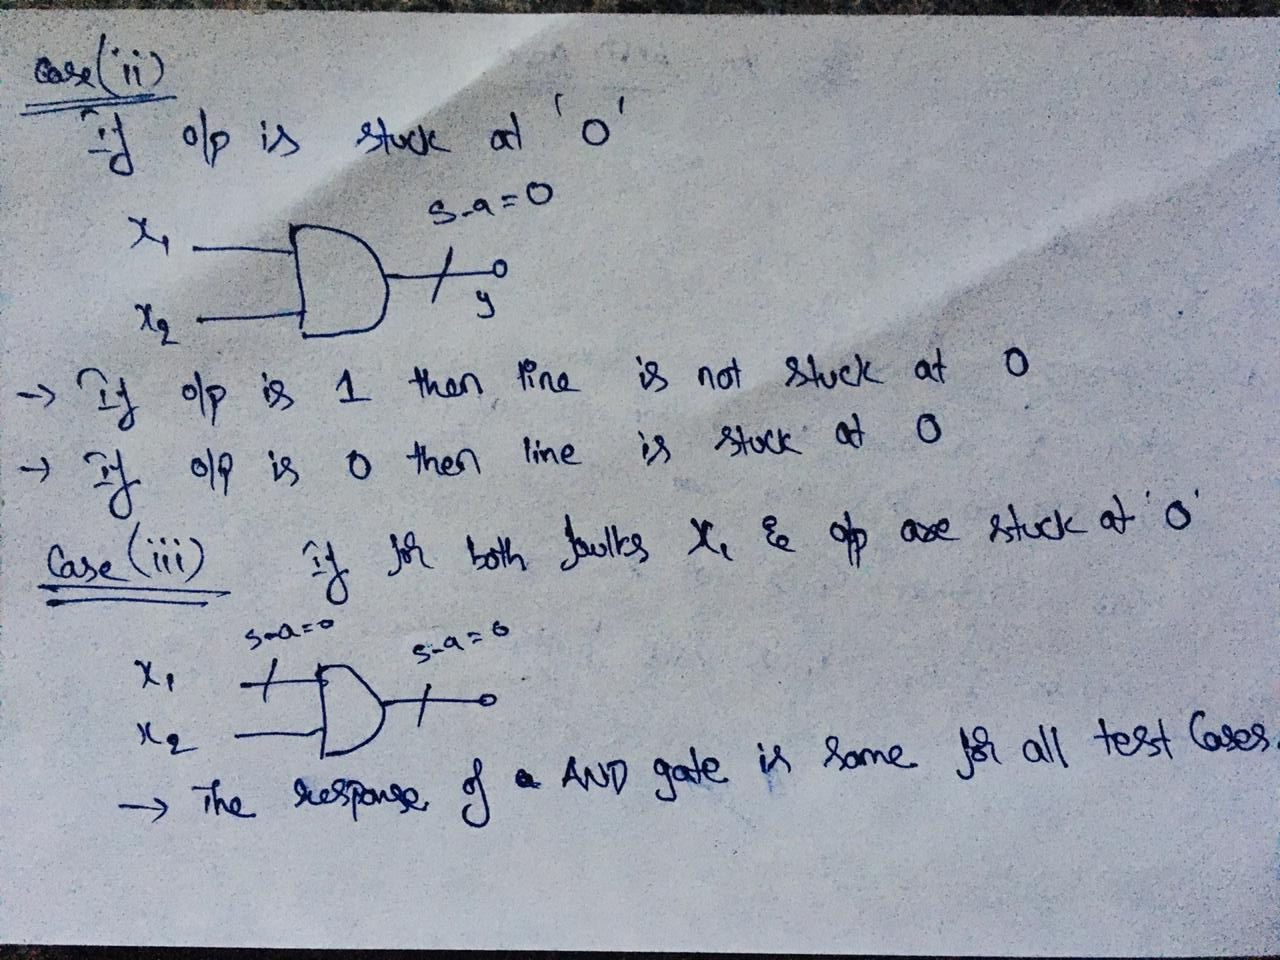 Case(ii)
If o/p is stuck at '0'
s-a=0
x1
x2
y
→ If o/p is 1 then line is not stuck at 0
→ If o/p is 0 then line is stuck at 0
Case (iii) If for both faults x1 & o/p are stuck at '0'
s-a=0
s-a=0
x1
x2
→ The response of a AND gate is same for all test Cases.